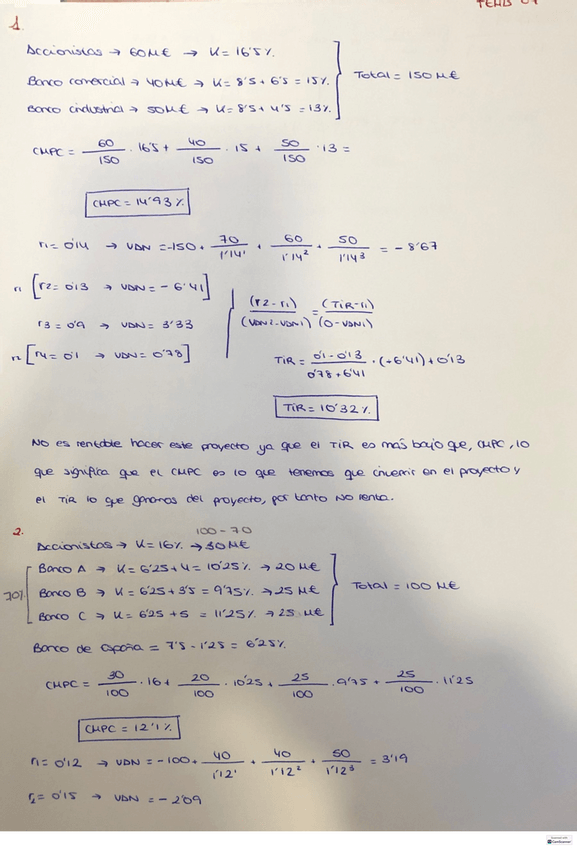 TEMA 04
1.
Accionistas → 60M€ → K = 16'5%.
Banco comercial → 40M€ → K = 8'5 + 6'5 = 15%.
Total = 150 M€
Banco industrial → 50M€ → K = 8'5 + 4'5 = 13%.
CMPC = 60/150 · 16'5 + 40/150 · 15 + 50/150 · 13 =
CMPC = 14'93%
r1 = 0'14 → VDN = -150 + 70/1'14¹ + 60/1'14² + 50/1'14³ = -8'67
r1 [r2 = 0'13 → VDN = -6'41]
(r2-r1)/(VDN2-VDN1) = (TIR-r1)/(0-VDN1)
r3 = 0'9 → VDN = 3'33
r2 [r4 = 0'1 → VDN = 0'78]
TIR = 0'1-0'13/0'78+6'41 · (+6'41) + 0'13
TIR = 10'32%
No es rentable hacer este proyecto ya que el TIR es más bajo que, CMPC, lo
que significa que el CMPC es lo que tenemos que invertir en el proyecto y
el TIR lo que ganamos del proyecto, por tanto NO renta.
2.
100-70
Accionistas → K = 16% → 30M€
Banco A → K = 6'25 + 4 = 10'25% → 20M€
70% Banco B → K = 6'25 + 3'5 = 9'75% → 25 M€
Total = 100 M€
Banco C → K = 6'25 + 5 = 11'25% → 25 M€
Banco de España = 7'5 - 1'25 = 6'25%
CMPC = 30/100 · 16 + 20/100 · 10'25 + 25/100 · 9'75 + 25/100 · 11'25
CMPC = 12'1%
r1 = 0'12 → VDN = -100 + 40/1'12¹ + 40/1'12² + 50/1'12³ = 3'19
r2 = 0'15 → VDN = -2'09
CamScanner